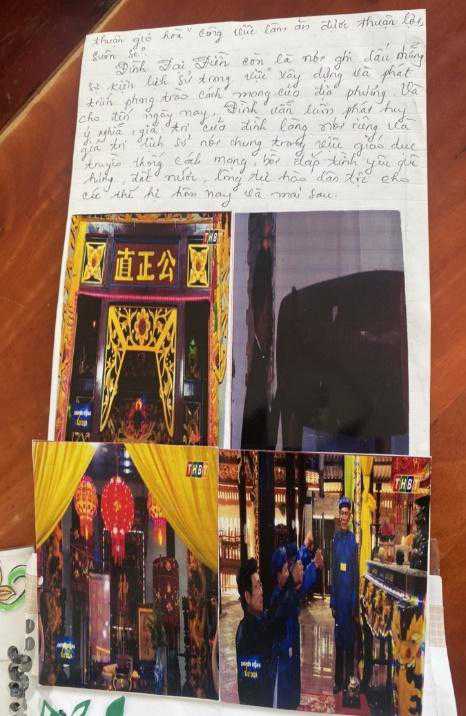 thuận gió hòa" công việc làm ăn được thuận lợi,
suôn sẻ.
Đình Đại Điền còn là nơi ghi dấu những
sự kiện lịch sử trong việc xây dựng và phát
triển phong trào cách mạng của địa phương. Và
cho đến ngày nay, Đình vẫn luôn phát huy
ý nghĩa, giá trị của đình làng nói riêng và
giá trị lịch sử nói chung trong việc giáo dục
truyền thống cách mạng, bồi đắp tình yêu quê
hương, đất nước, lòng tự hào dân tộc cho
các thế hệ hôm nay và mai sau.
THBT
直正公
THBT
THBT